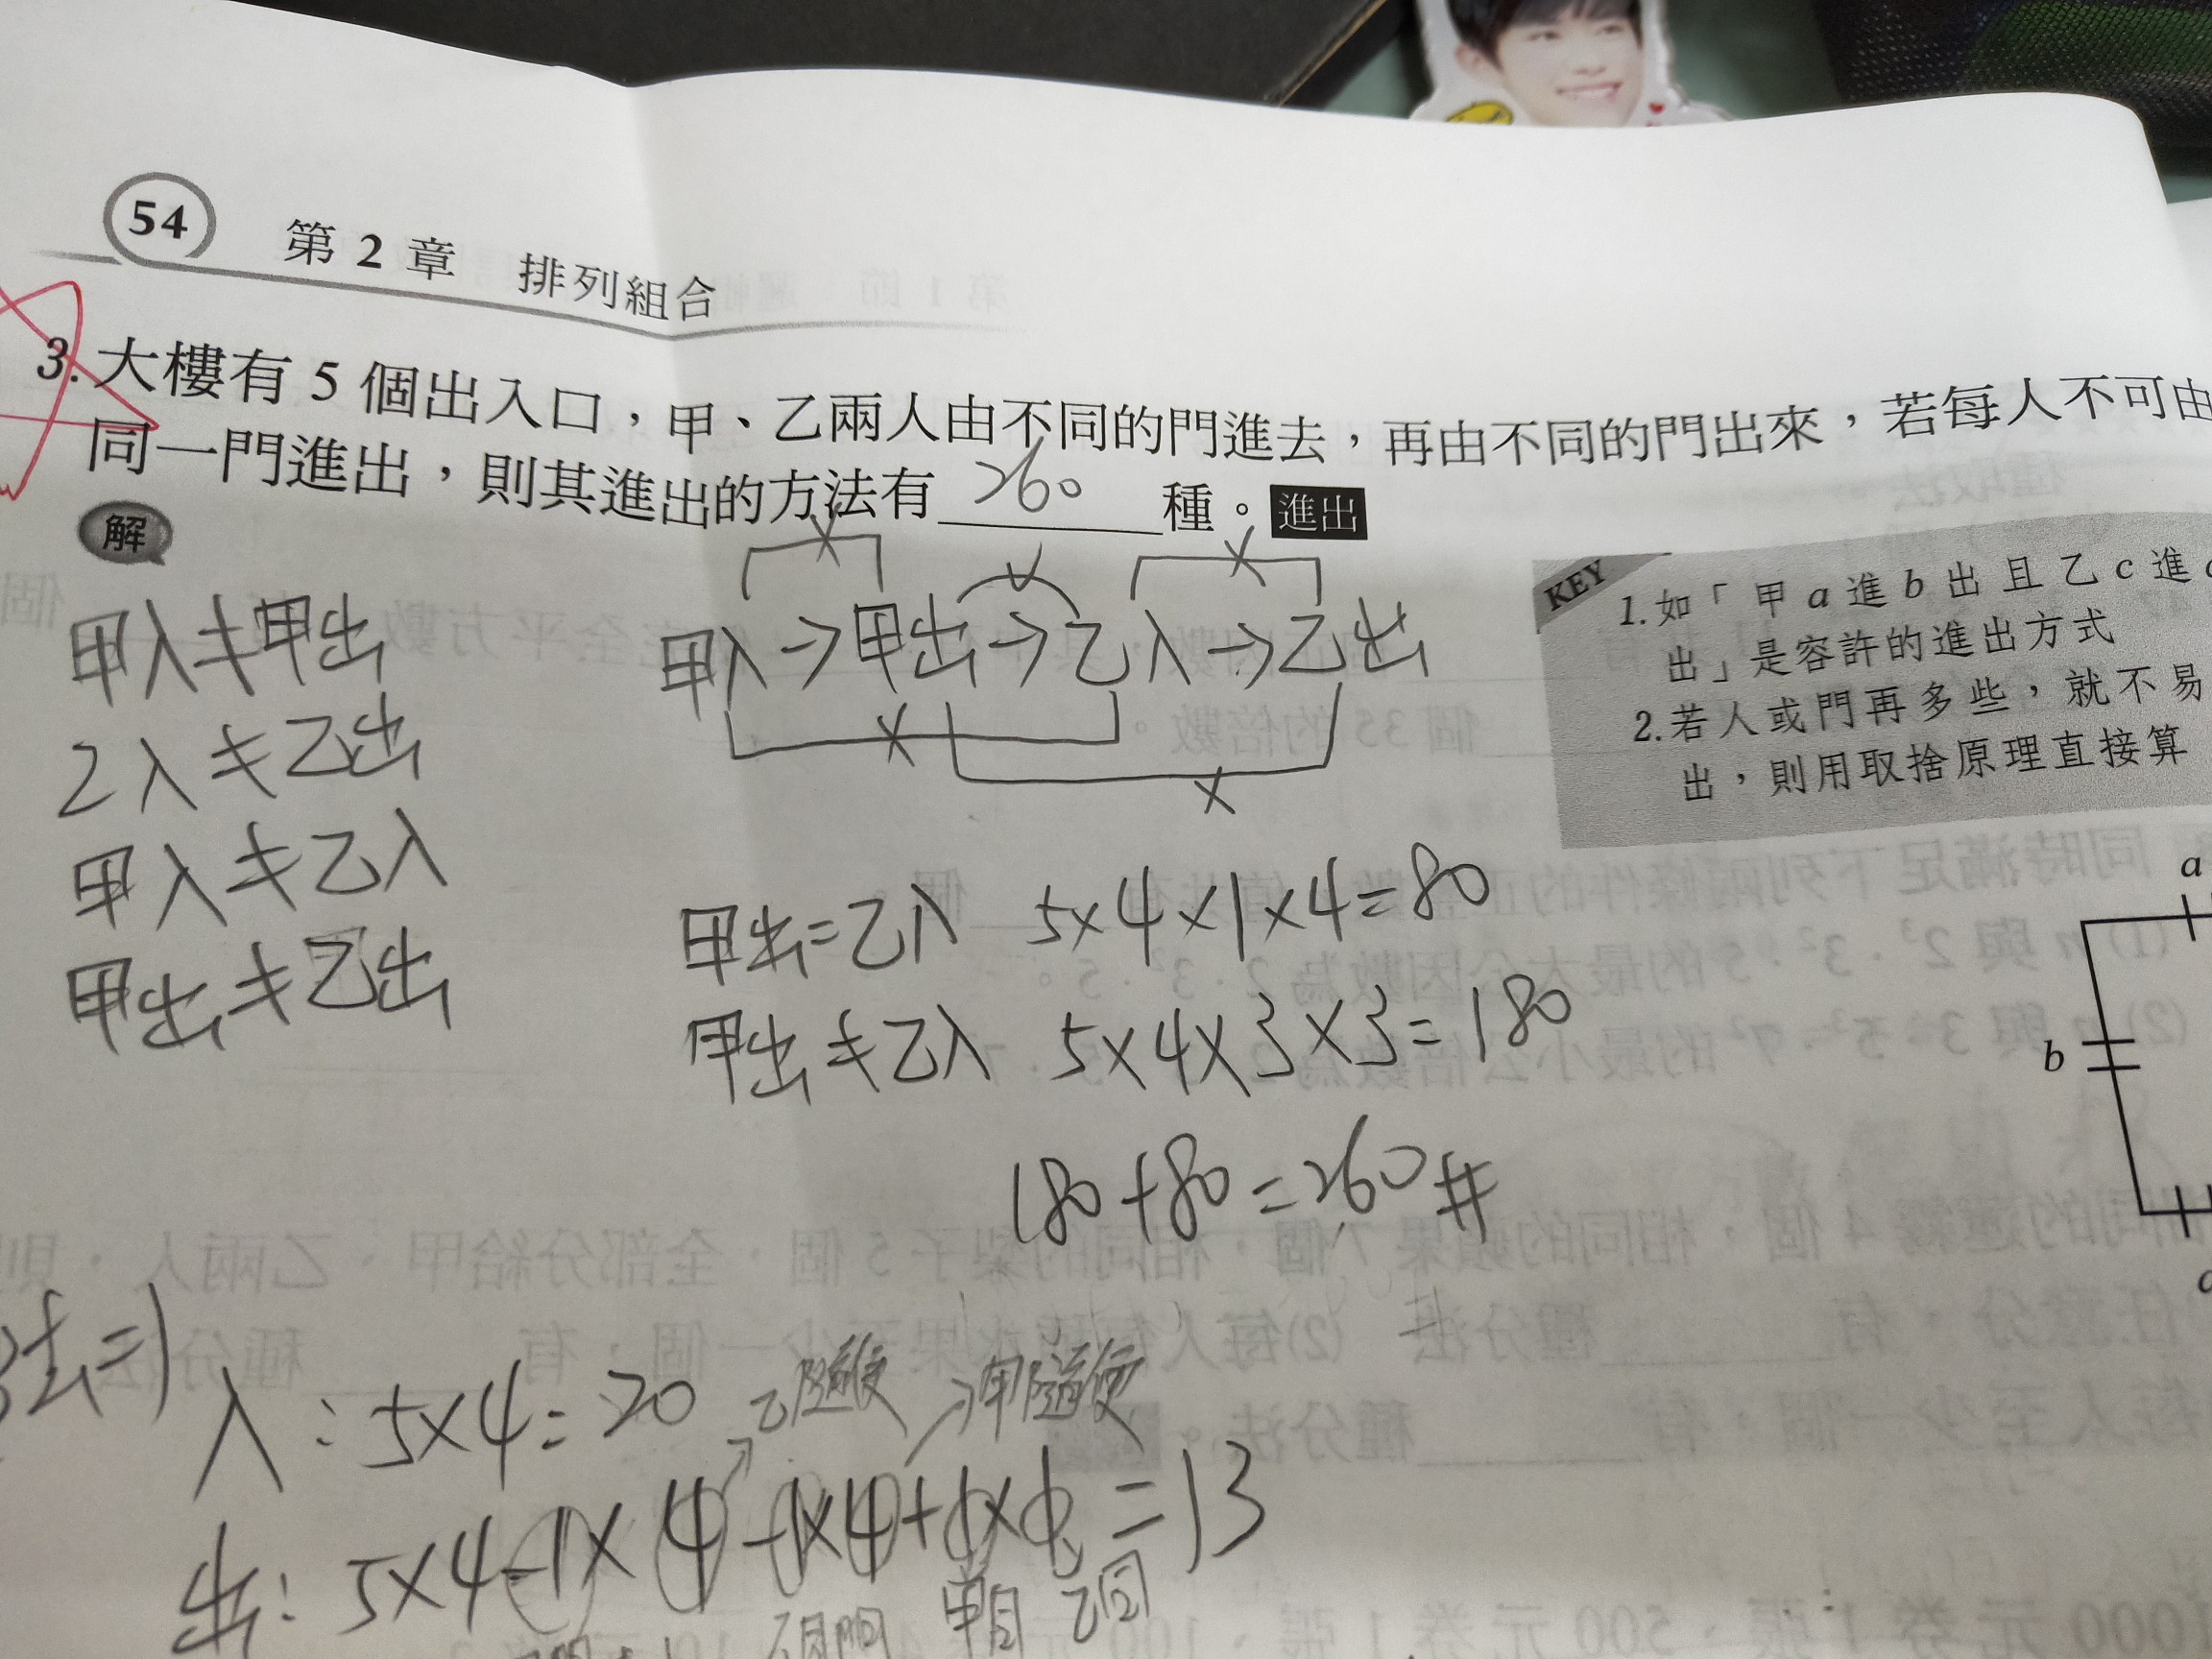 54 第 2 章 排列組合
3. 大樓有 5 個出入口，甲、乙兩人由不同的門進去，再由不同的門出來，若每人不可由
同一門進出，則其進出的方法有 260 種。進出
解
KEY
1. 如「甲 a 進 b 出且乙 c 進
出」是容許的進出方式
2. 若人或門再多些，就不易
出，則用取捨原理直接算
甲入≠甲出
乙入≠乙出
甲入≠乙入
甲出≠乙出
甲入→甲出→乙入→乙出
甲出=乙入 5×4×1×4=80
甲出≠乙入 5×4×3×3=180
180+80=260#
a
b
法=1
入：5×4=20
乙隨便 →甲隨便
出：5×4-1×4-1×4+1×1=13
甲回 乙回